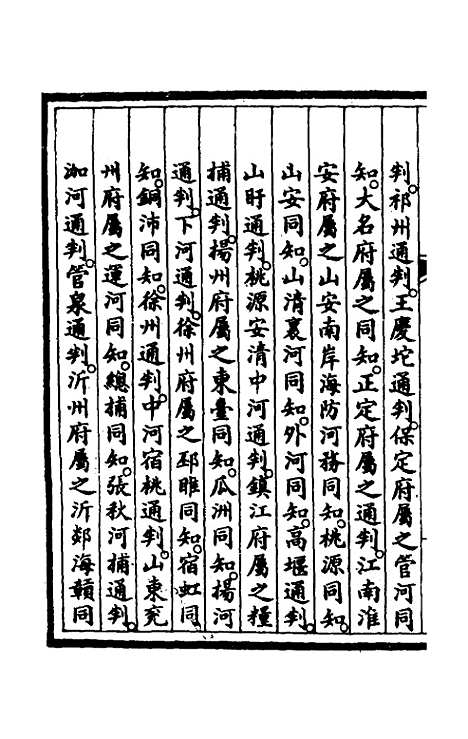 判祁州通判王慶坨通判保定府屬之管河同
知大名府屬之同知正定府屬之通判江南淮
安府屬之山安南岸海防河務同知桃源同知
山安同知山清裏河同知外河同知高堰通判
山盱通判桃源安清中河通判鎮江府屬之糧
捕通判揚州府屬之東臺同知瓜洲同知揚河
通判下河通判徐州府屬之邳睢同知宿虹同
知銅沛同知徐州通判中河宿桃通判山東兖
州府屬之運河同知總捕同知張秋河捕通判
泇河通判管泉通判沂州府屬之沂郯海贛同